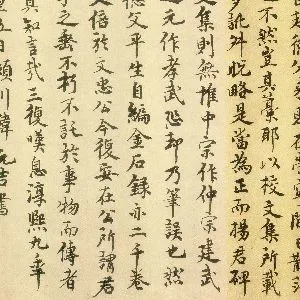 不然豈其藁耶以校文集所載
多訛舛脫略是當為正而楊君碑
文集則無惟中宗作仲宗建武
之元作孝武恐却乃筆誤也然
德父平生自編金石錄亦二千卷
又倍於文忠公今復安在公所謂君
子之垂不朽不託於事物而傳者
真知言哉三復嘆息淳熙九年
五日潁川韓元吉書